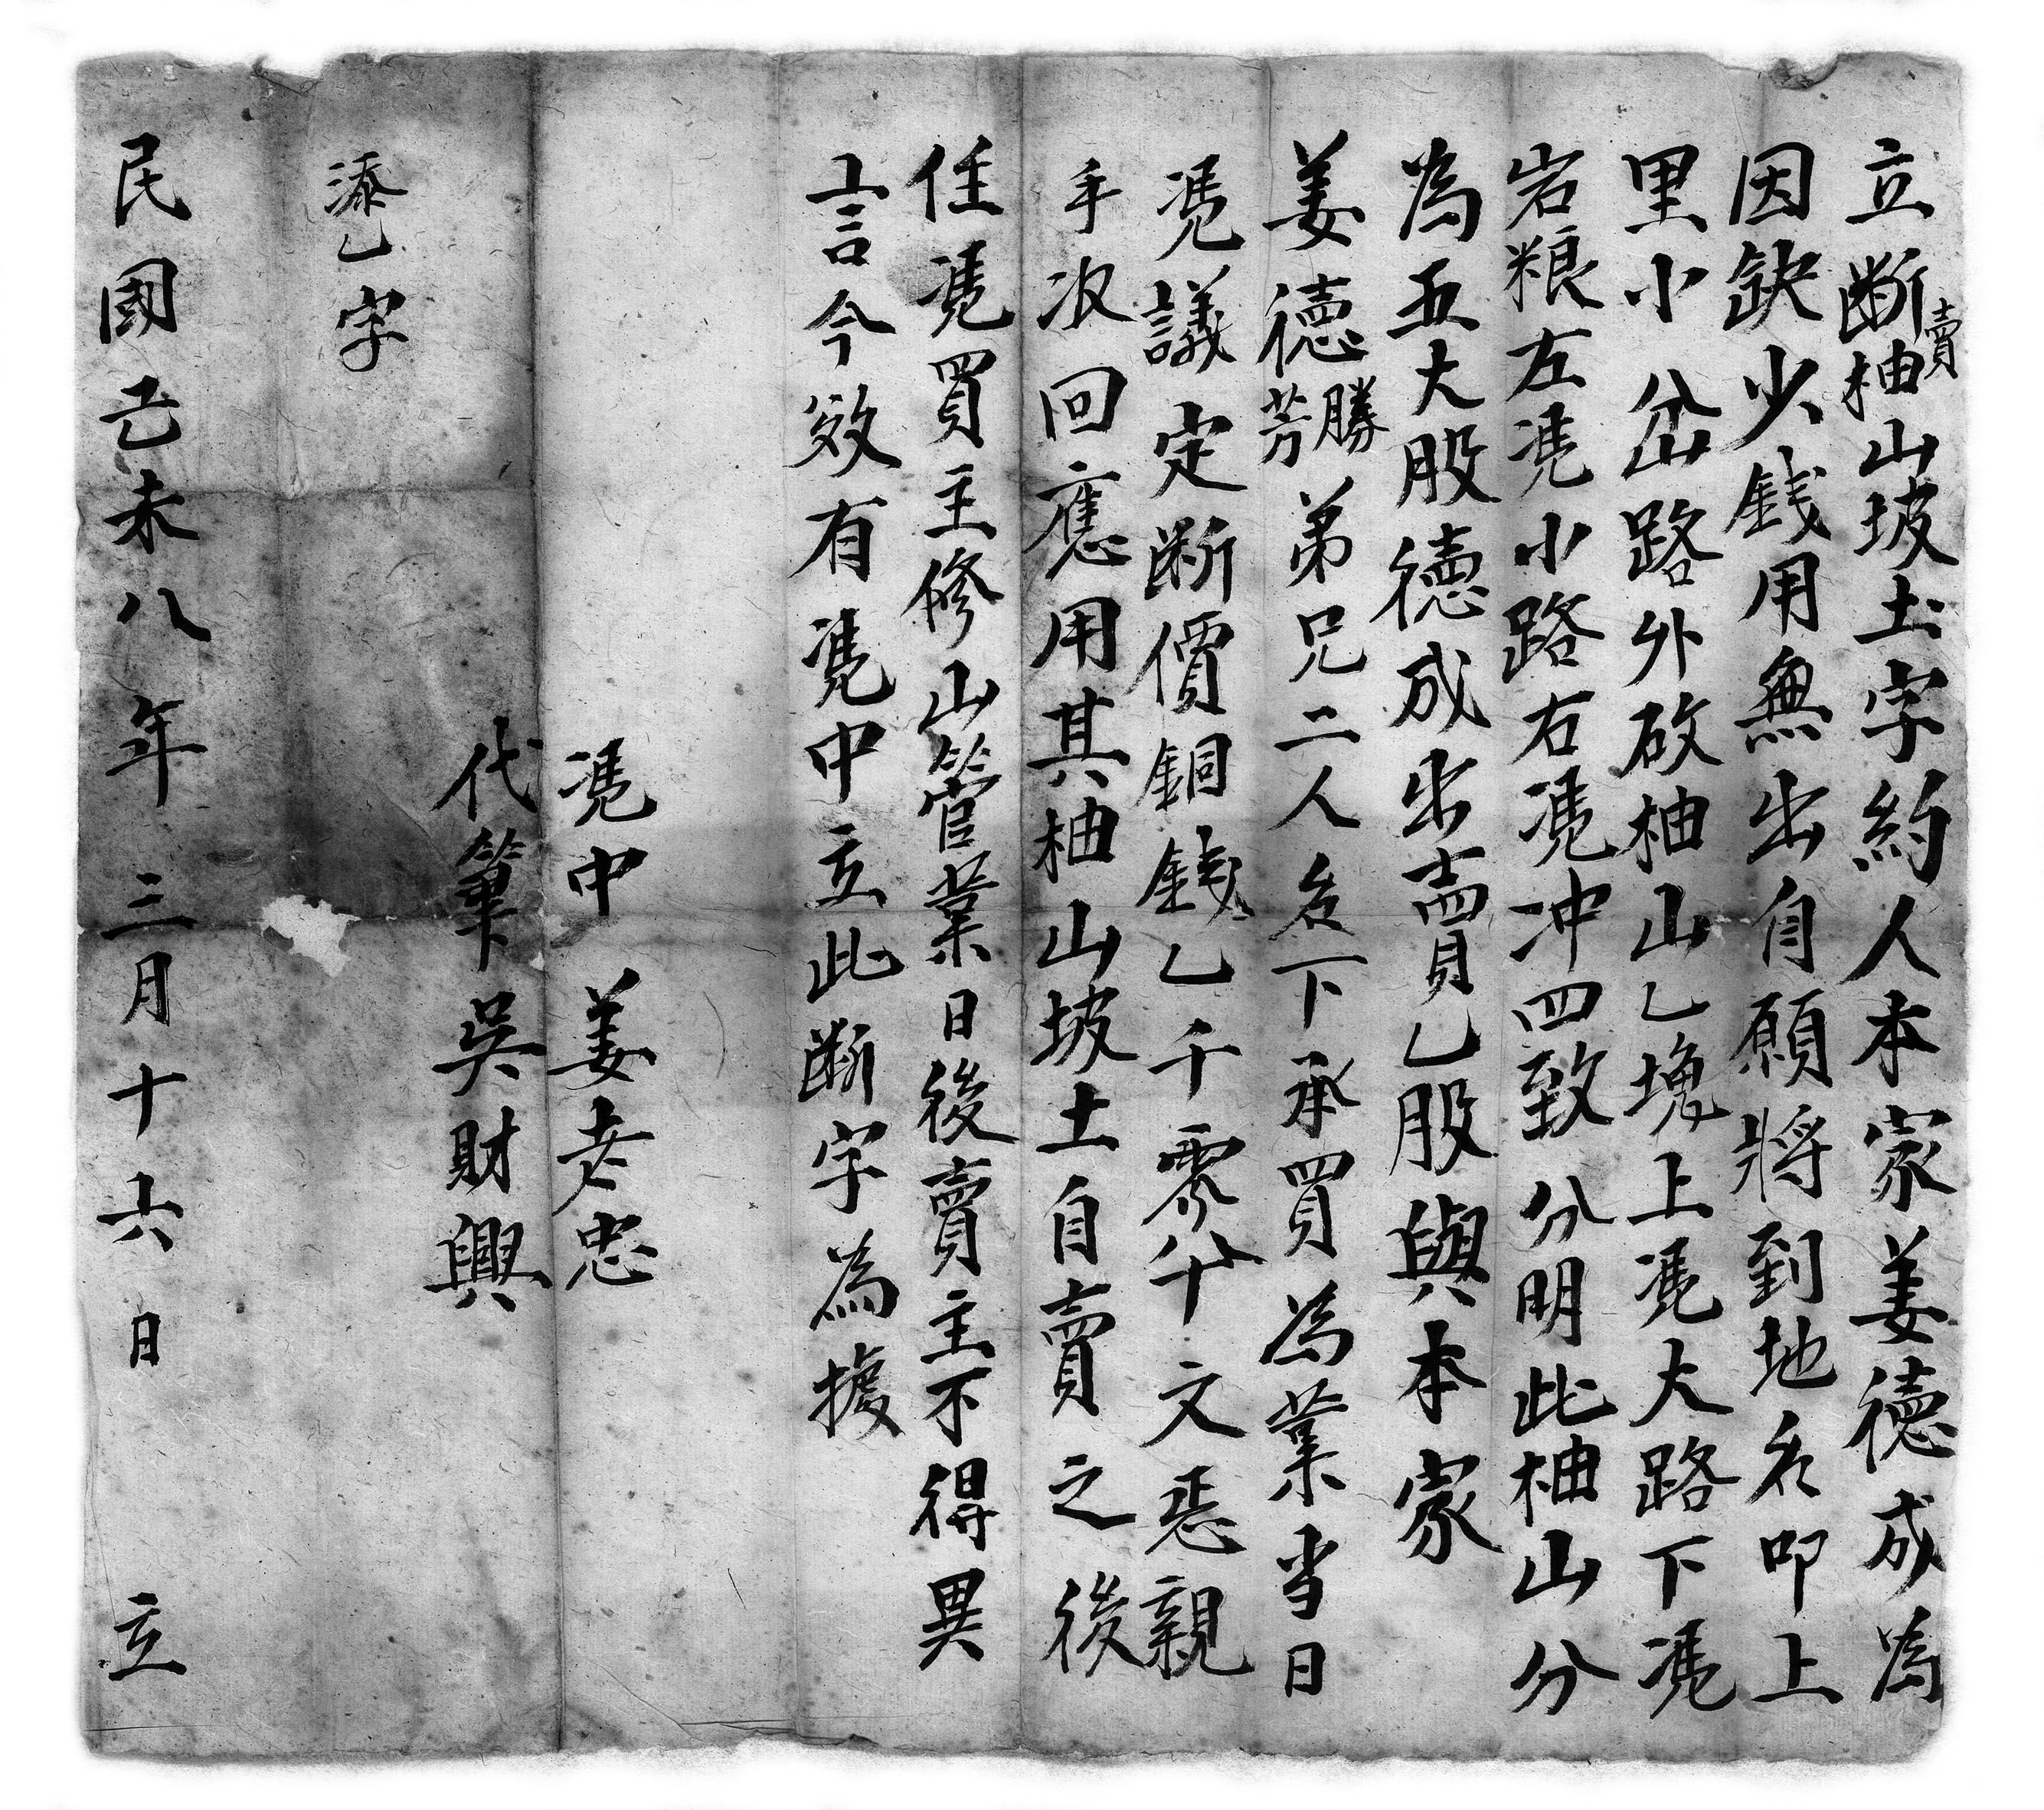 立断賣柚山坡土字約人本家姜德成為
因缺少錢用無出自願將到地名叩上
里小岔路外砍柚山乙塊上凴大路下凴
岩粮左凴小路右凴冲四致分明此柚山分
為五大股德成出賣乙股與本家
姜德勝芳弟兄二人名下承買為業当日
凴議定断價銅錢乙千零八十文恶親
手收回應用其柚山坡土自賣之後
任凴買主修山管業日後賣主不得異
言今欲有凴中立此断字為據
凴中 姜老忠
代筆 吳財興
添乙字
民國己未八年三月十六日 立